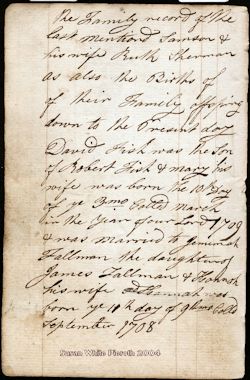 The Family record of the
last mentiond Samson &
his wife Ruth Sherman
as also the Births of
of their Family ofspring
down to the Present day
David Fish was the Son
of Robert Fish & mary his
wife was born the 10 Day
of ye 3mo Calld March
in the Year of our Lord 1709
& was married to Jemimah
Tallman the daughter of
James Tallman & Hannah
his wife Hannah was
born ye 11th day of 9 Calld
September 1708
Susan White Pieroth 2004